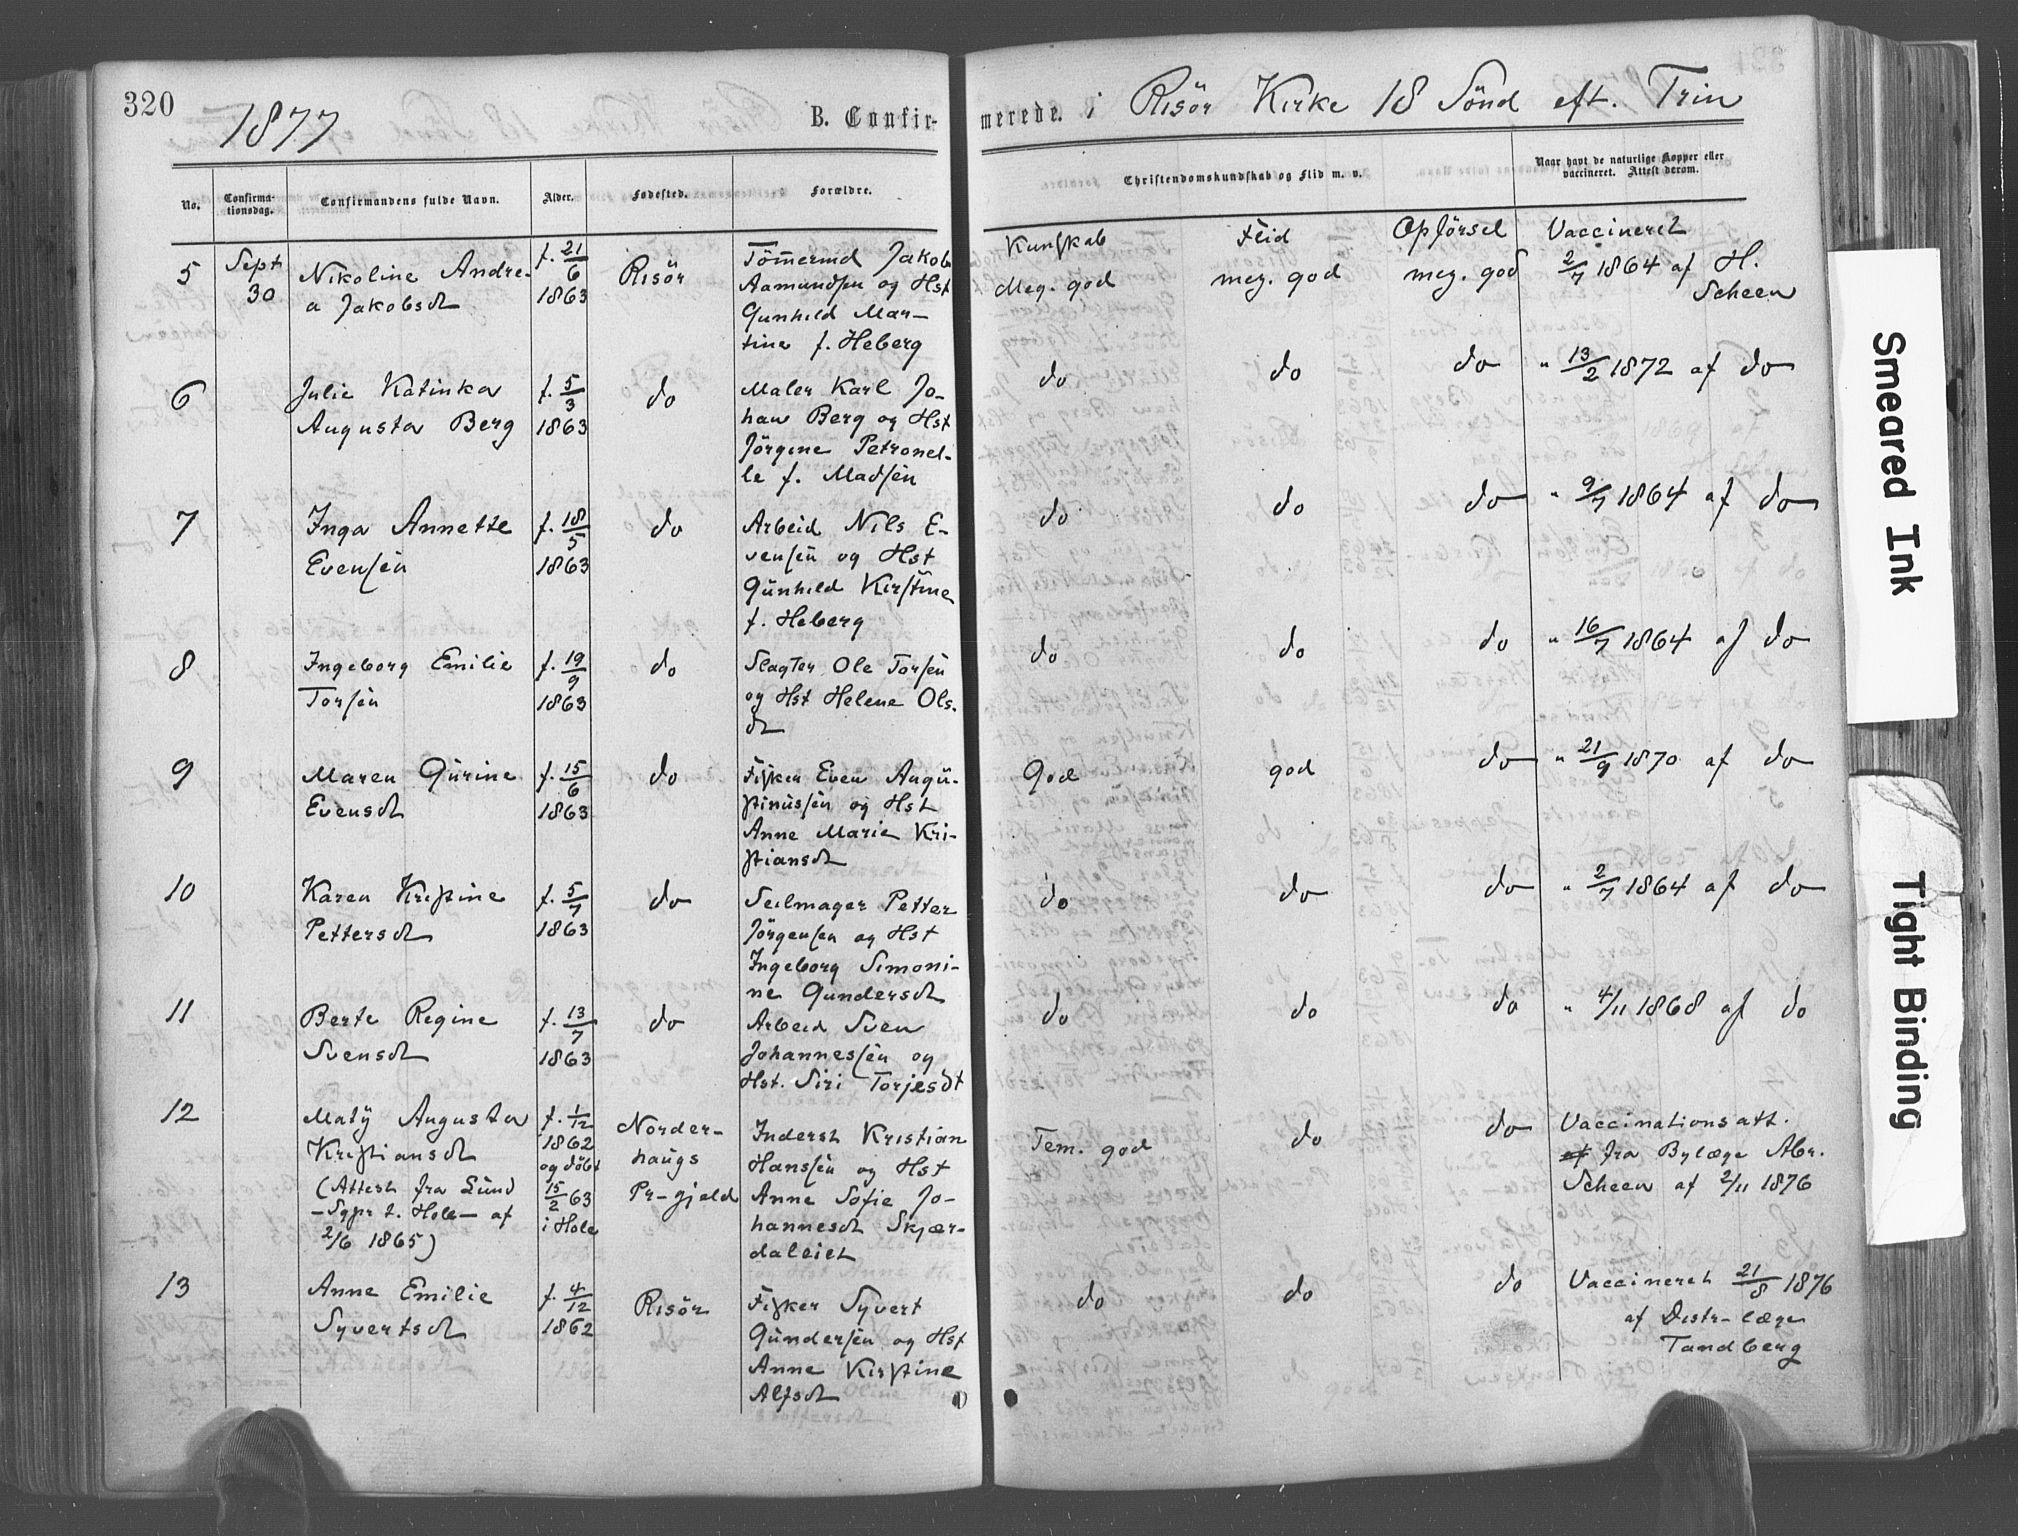 320
1877
B. Confirmerede. i Risör Kirke 18 Sönd eft. Trin
No.
Confirma-
tionsdag.
Confirmandens fulde Navn.
Alder.
Fødested.
Forældre.
Christendomskundskab og Flid m. v.
Naar havt de naturlige Kopper eller
vaccineret. Attest derom.
Kunskab
Flid
Opförsel
Vaccineret
5
Sept
30
Nikoline Andre-
a Jakobsdt
f. 21/6
1863
Risör
Tömermd Jakob
Aamundsen og Hst
Gunhild Mar-
tine f. Heberg
Meg. god
meg. god
meg. god
2/7 1864 af H.
Scheen
6
Julie Katinka
Augusta Berg
f. 5/3
1863
do
Maler Karl Jo-
han Berg og Hst
Jörgine Petronel-
le f. Madsen
do
do
do
" 13/2 1872 af do
7
Inga Annette
Evensen
f. 18/5
1863
do
Arbeid Nils E-
vensen og Hst
Gunhild Kirstine
f. Heberg
do
do
do
" 9/7 1864 af do
8
Ingeborg Emilie
Torsen
f. 19/9
1863
do
Slagter Ole Torsen
og Hst Helene Ols.
dt
do
do
do
" 16/7 1864 af do
9
Maren Gurine
Evensdt
f. 15/6
1863
do
Fisker Even Augu-
stinussen og Hst
Anne Marie Kri-
stiansdt
God
god
do
" 21/9 1870 af do
10
Karen Kristine
Pettersdt
f. 5/7
1863
do
Seilmager Petter
Jörgensen og Hst
Ingeborg Simoni-
ne Gundersdt
do
do
do
" 2/7 1864 af do
11
Berte Regine
Svensdt
f. 13/7
1863
do
Arbeid Sven
Johannessen og
Hst. Siri Torjesdt
do
do
do
" 4/11 1868 af do
12
Maty Augusta
Kristiansdt
(Attest fra Lund
- Sgpr t. Hole - af
2/6 1865)
f. 1/12
1862
og döbt
15/2 63
i Hole
Norder-
haugs
Pr-gjeld
Inderst Kristian
Hanssen og Hst
Anne Sofie Jo-
hannesdt Skjær-
daleiet
Tem. god
do
do
Vaccinationsatt.
af fra Bylæge Abr.
Scheen af 2/11 1876
13
Anne Emilie
Syvertsdt
f. 4/12
1862
Risör
Fisker Syvert
Gundersen og Hst
Anne Kirstine
Alfsdt
do
do
do
Vaccineret 21/8 1876
af Distr-læge
Tandberg
Smeared Ink
Tight Binding